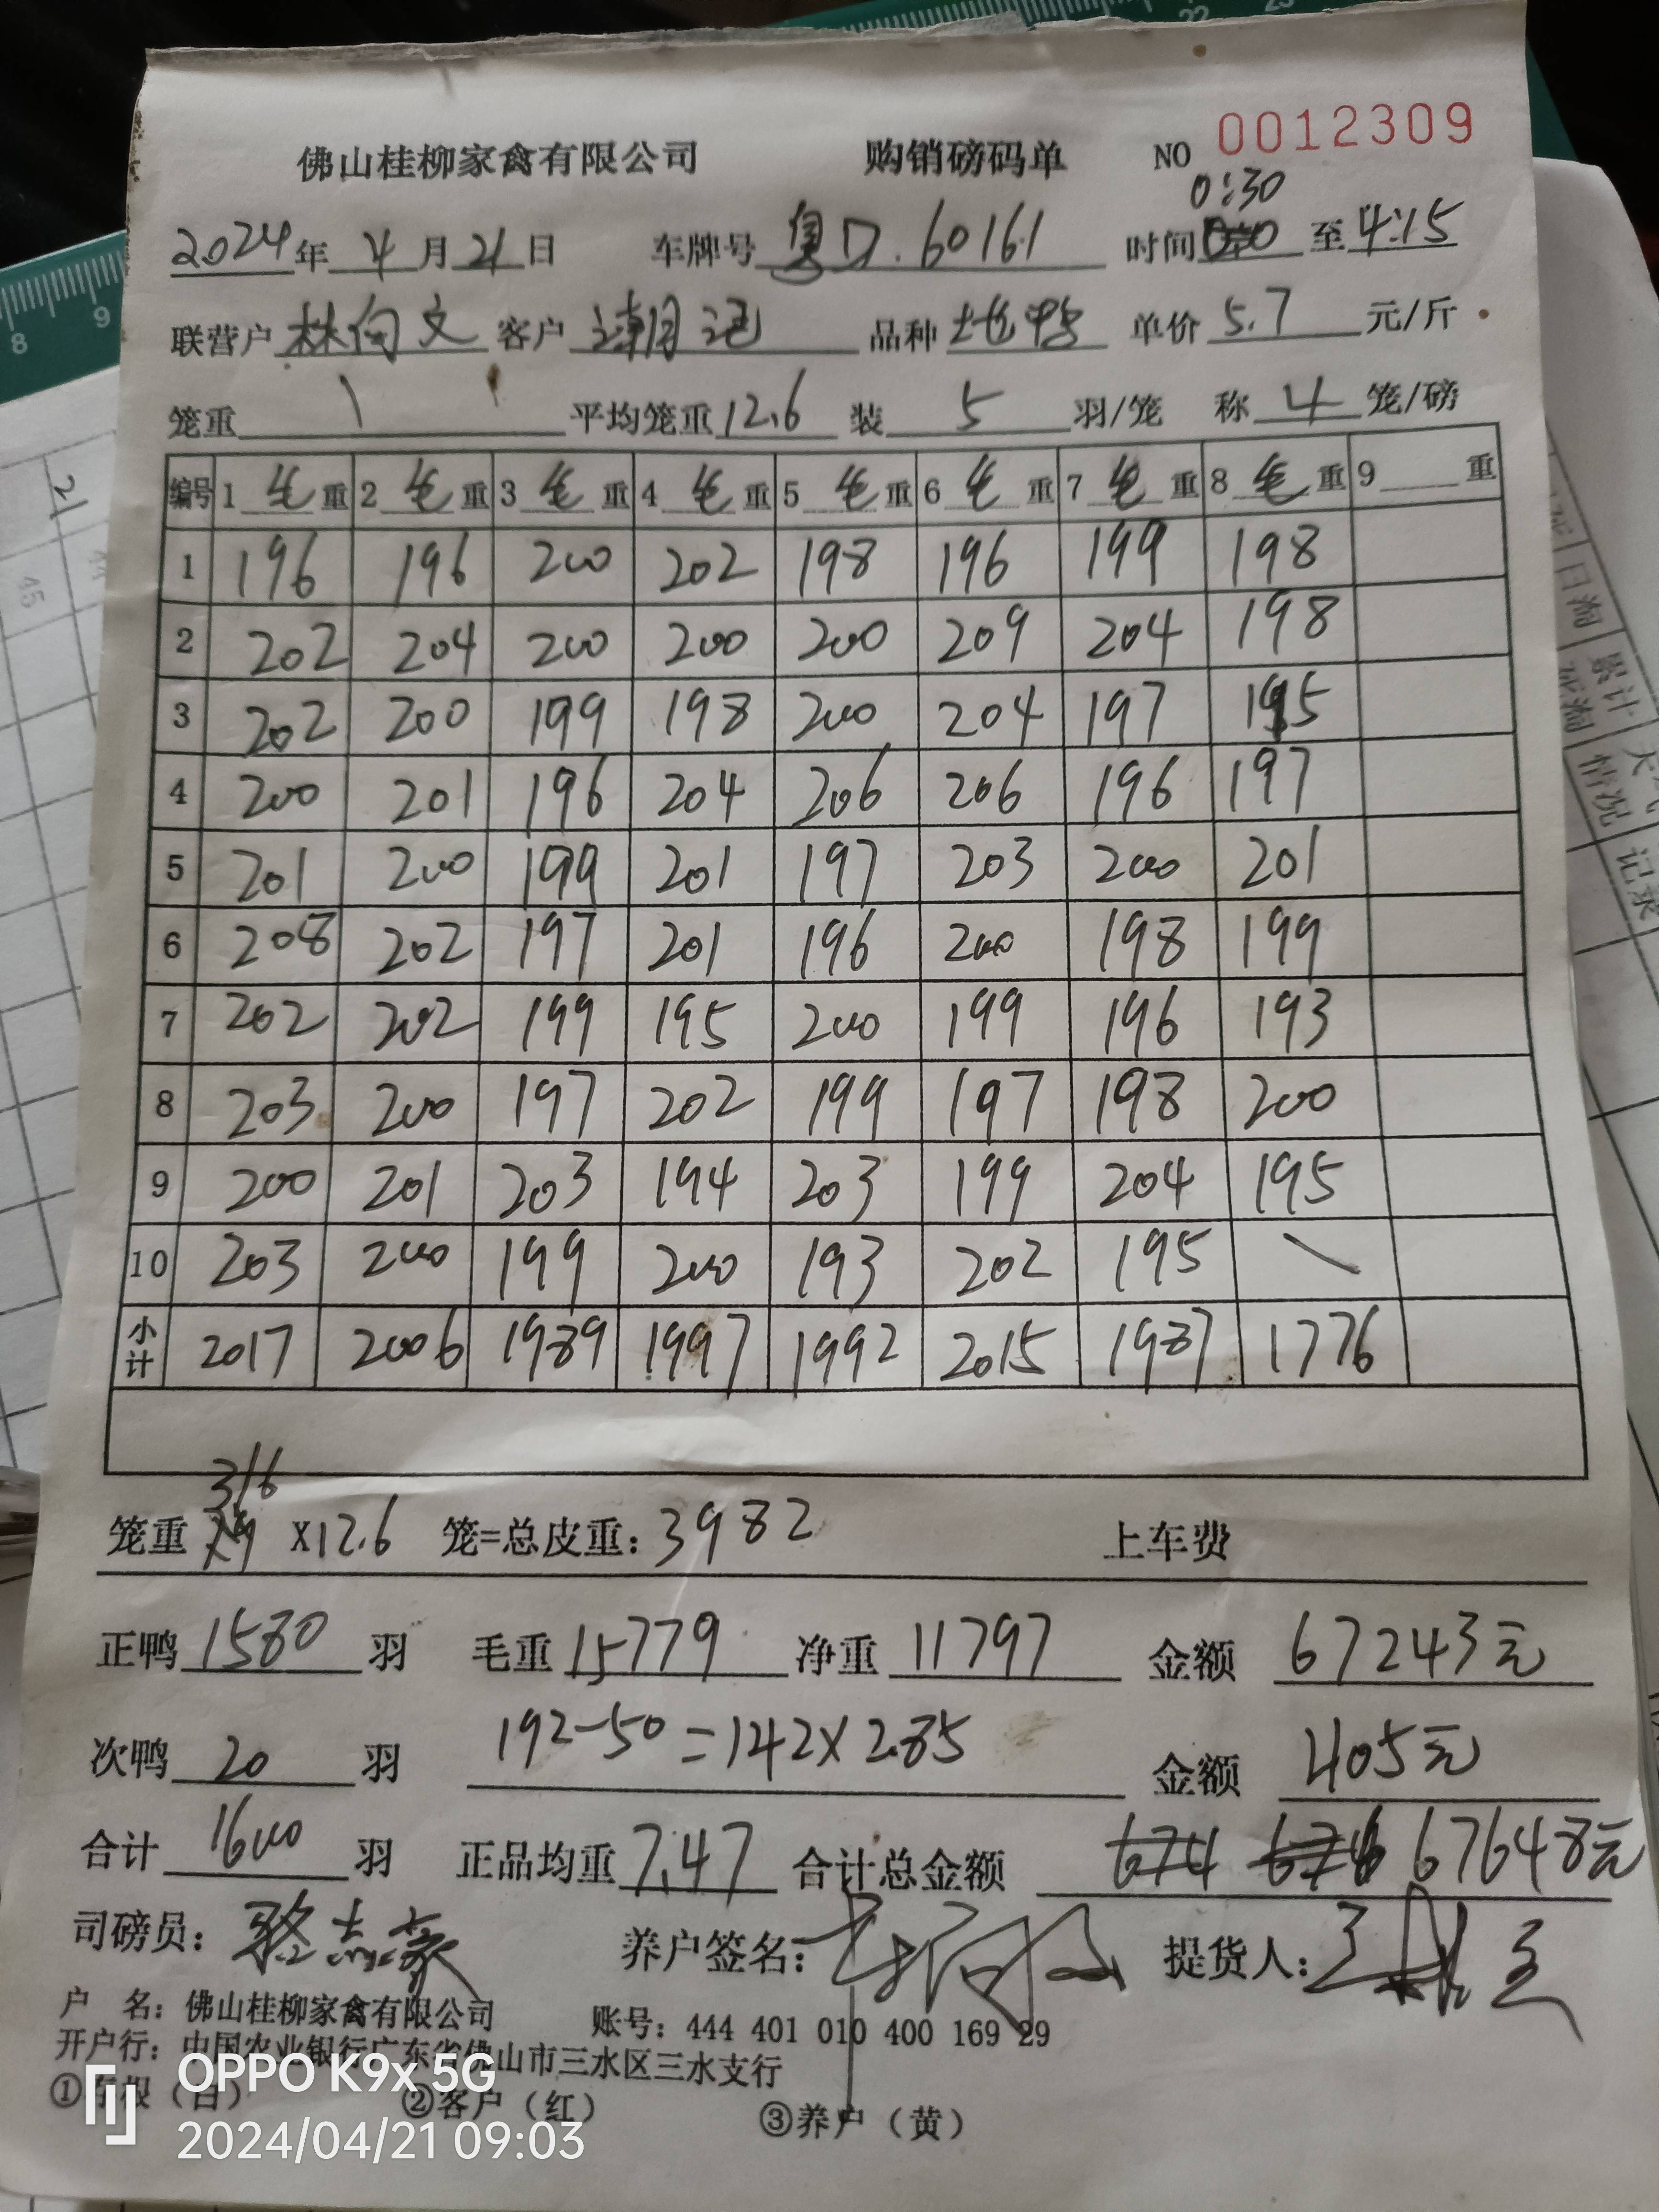 佛山桂柳家禽有限公司 购销磅码单 NO 0012309
0:30
2024年 4月21日 车牌号 粤D.60161 时间 至 4:15
联营户 林向文 客户 潮记 品种 土鸭 单价 5.7 元/斤
笼重 \ 平均笼重 12.6 装 5 羽/笼 称 4 笼/磅
编号 1 毛 重 2 毛 重 3 毛 重 4 毛 重 5 毛 重 6 毛 重 7 毛 重 8 毛 重 9 重
1 196 196 200 202 198 196 199 198
2 202 204 200 200 200 209 204 198
3 202 200 199 198 200 204 197 195
4 200 201 196 204 206 206 196 197
5 201 200 199 201 197 203 200 201
6 208 202 197 201 196 200 198 199
7 202 202 199 195 200 199 196 193
8 203 200 197 202 199 197 198 200
9 200 201 203 194 203 199 204 195
10 203 200 199 200 193 202 195 \
小计 2017 2006 1989 1997 1992 2015 1987 1776
316
笼重 ×12.6 笼=总皮重: 3982 上车费
正鸭 1580 羽 毛重 15779 净重 11797 金额 67243元
次鸭 20 羽 192-50=142×2.85 金额 405元
合计 1600 羽 正品均重 7.47 合计总金额 674 676 67648元
司磅员: 骆志豪 养户签名: 提货人:
户 名: 佛山桂柳家禽有限公司 账号: 444 401 010 400 169 29
开户行: 中国农业银行广东省佛山市三水区三水支行
①存根（白） ②客户（红） ③养户（黄）
OPPO K9x 5G
2024/04/21 09:03
21
44
45
日淘
累计
死淘
情况
天气
记录
8 9
22 23